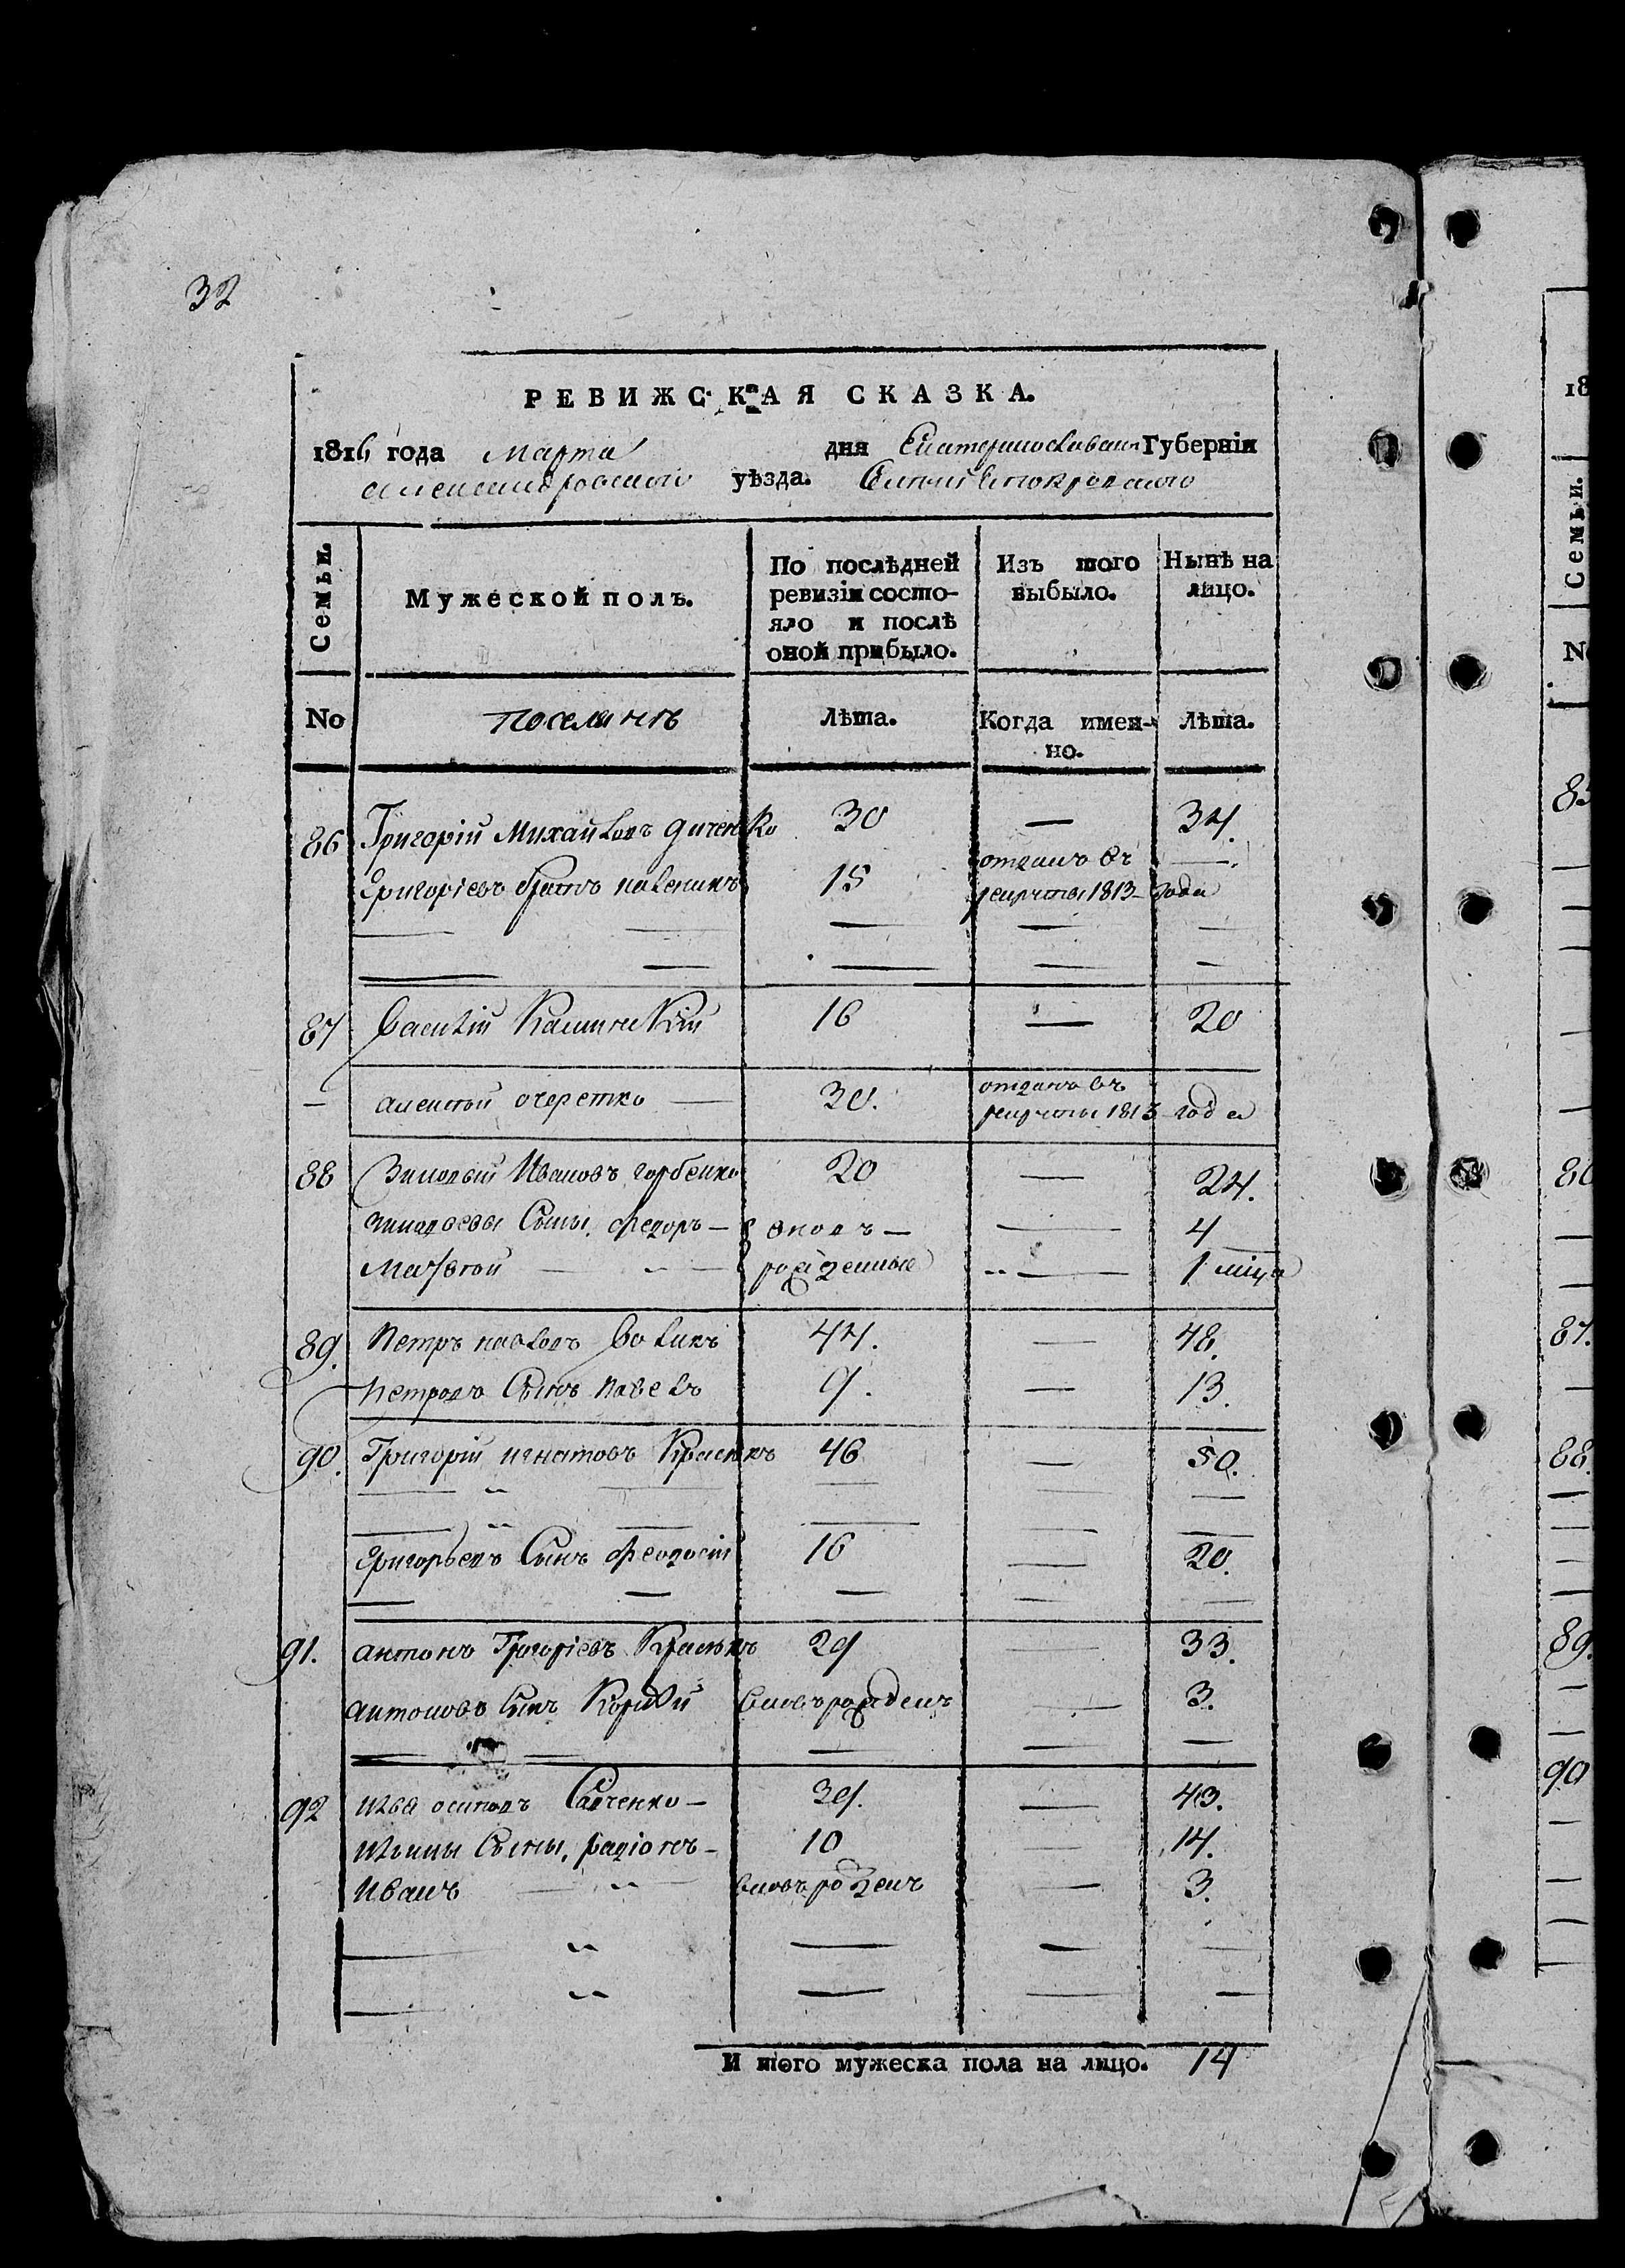 32
РЕВИЖСКАЯ СКАЗКА.
1816 года Марта дня Екатеринославской Губернiи
Александровскаго уѣзда.
Семьи. Мужеской полъ. По послѣдней ревизiи состо- яло и послѣ оной прибыло. Изъ того выбыло. Нынѣ на лицо.
No поселянъ Лѣта. Когда имен- но. Лѣта.
86 Григорiй Михайловъ 30 — 34.
Григорiевъ братъ 15 отданъ въ рекруты 1813 года
87 Василiй 16 — 20
— Алексѣй очеретко — 30. отданъ въ рекруты 1813 года
88 Зиновѣй Ивановъ горбенко 20 — 24.
Зиновѣевы Сыны, Федоръ — вновь — 4
Матвей рожденные — 1 мѣца
89. Петръ павловъ Воликъ 44. — 48.
Петровъ Сынъ Павелъ 9. — 13.
90. Григорiй игнатовъ 46 — 50.
Григорьевъ Сынъ Феодосiй 16 — 20.
91. антонъ Григорiевъ 29 — 33.
антоновъ Сынъ вновьрожденъ — 3.
92 Илья осиповъ Савченко — 39. — 43.
Ильины Сыны, Радiонъ — 10 14.
Иванъ вновьрожденъ — 3.
И того мужеска пола на лицо. 14
18
Семьи.
No
85
86
87.
88.
89.
90